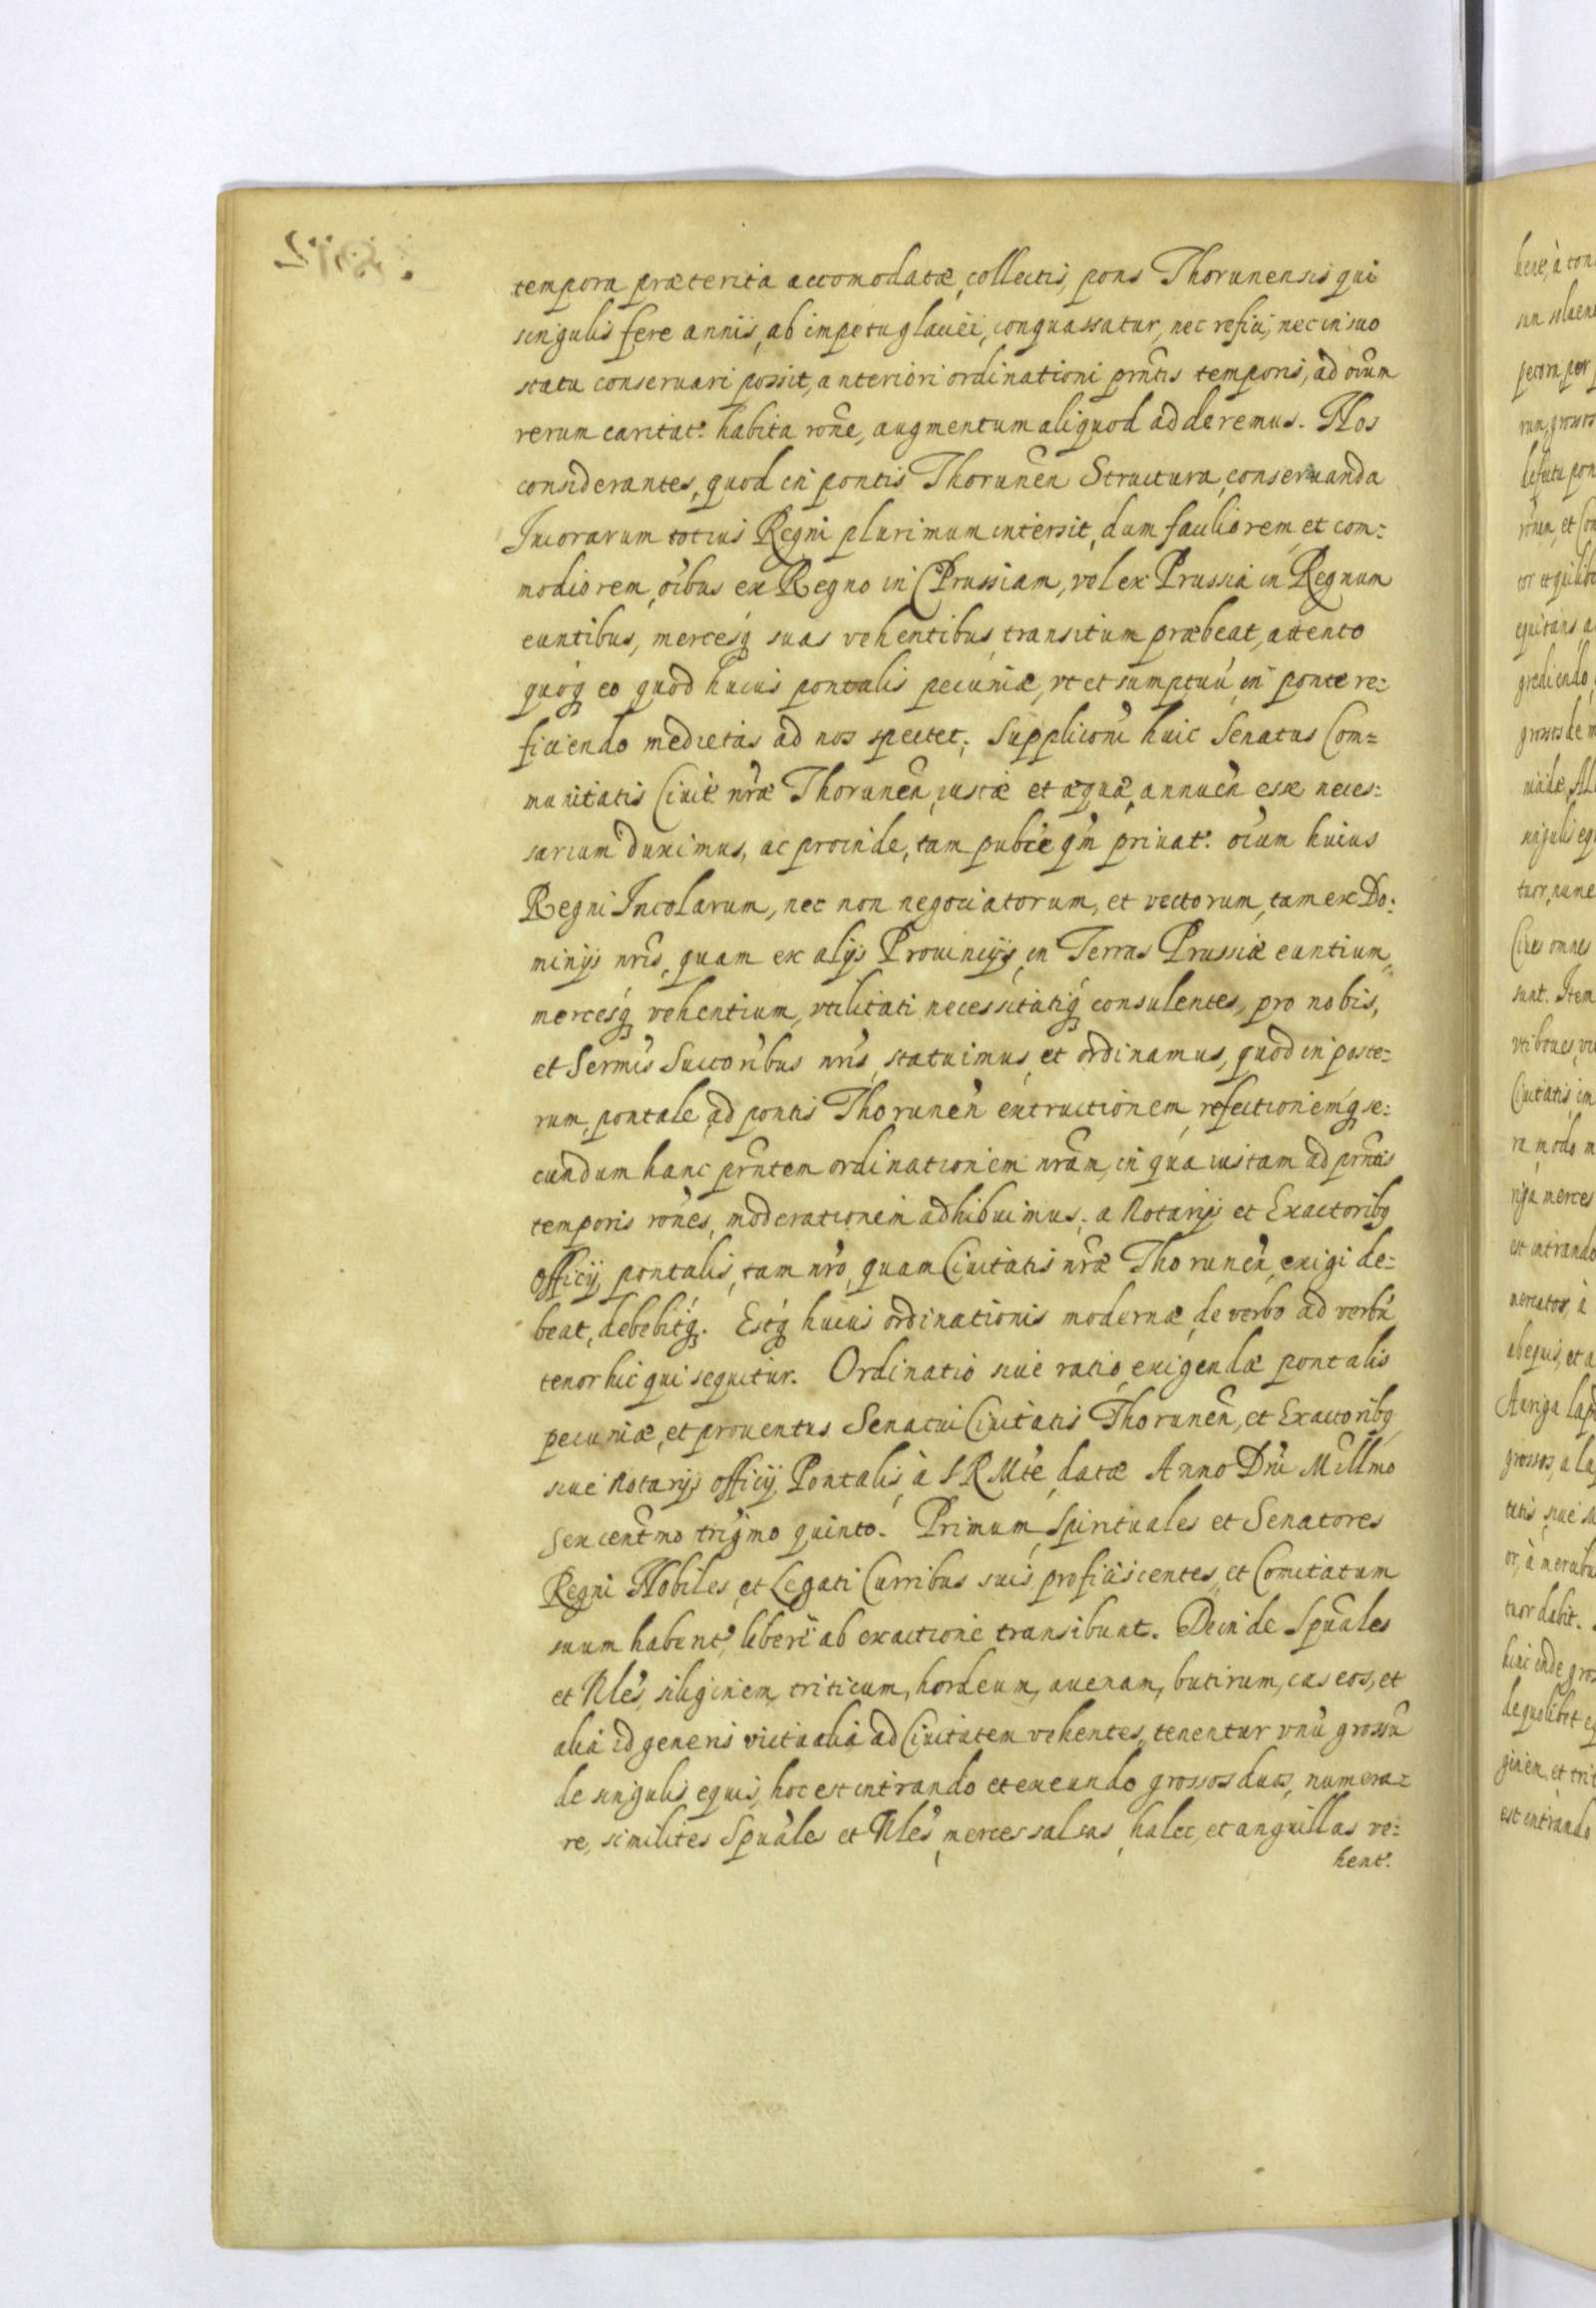 tempora præterita accomodatæ, collectis, pons Thorunensis qui
singulis fere annis, ab impetu glaciei, conquassatur, nec refici, nec in suo
statu conseruari possit, anteriori ordinationi prñtis temporis, ad oium
rerum caritat: habita rone, augmentum aliquod adderemus. Nos
considerantes, quod in pontis Thorunen Structura, conseruanda
Incorarum totius Regni plurimum intersit, dum faciliorem, et com:
modiorem, oibus ex Regno in Prussiam, vel ex Prussia in Regnum
euntibus, mercesq suas vehentibus, transitum præbeat, attento
quoq eo quod huius pontalis pecuniæ, vt et sumptuu, in ponte re:
ficiendo medietas ad nos spectet; Suppliconi huic Senatus Com=
munitatis Ciuit nræ Thorunen, iustæ et æquæ, annuen esse neces:
sarium duximus, ac proinde, tam publce qm priuat: oium huius
Regni Incolarum, nec non negociatorum, et vectorum, tam ex Do:
minijs nris, quam ex alijs Prouincijs, in Terras Prussiæ euntium,
mercesq vehentium, vtilitati necessitatiq consulentes, pro nobis,
et Sermis Succoribus nris, statuimus, et ordinamus, quod in poste:
rum, pontale, ad pontis Thorunen extructionem, refectionemq se:
cundum hanc prñtem ordinationem nram, in qua iustam ad prñtis
temporis rones, moderationem adhibuimus; a Notarijs et Exactoribq
officij pontalis, tam nro, quam Ciuitatis nræ Thorunen, exigi de:
beat, debebitq. Estq huius ordinationis modernæ, de verbo ad verbu
tenor hic qui sequitur. Ordinatio siue ratio, exigendæ pontalis
pecuniæ, et prouentus Senatui Ciuitatis Thorunen, et Exactoribq
siue Notarijs officij Pontalis, à S R Mte, datæ Anno Dni Millmo
Sexcentmo trigmo quinto. Primum, Spirituales et Senatores
Regni Nobiles, et Legati Curribus suis proficiscentes, et Comitatum
suum habent, liberè ab exactione transibunt. Deinde Spuales
et Nles, siliginem, triticum, hordeum, auenam, butirum, caseos, et
alia id generis victualia ad Ciuitatem vehentes, tenentur vnu grossu
de singulis equis, hoc est intrando et exeundo grossos duos, numera:
re, similites Spuales et Nles, merces salsas, halec, et anguillas ve:
hent: